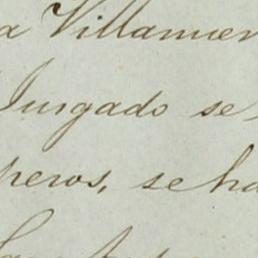 a Villamier
Jurgado se
peros, se ha